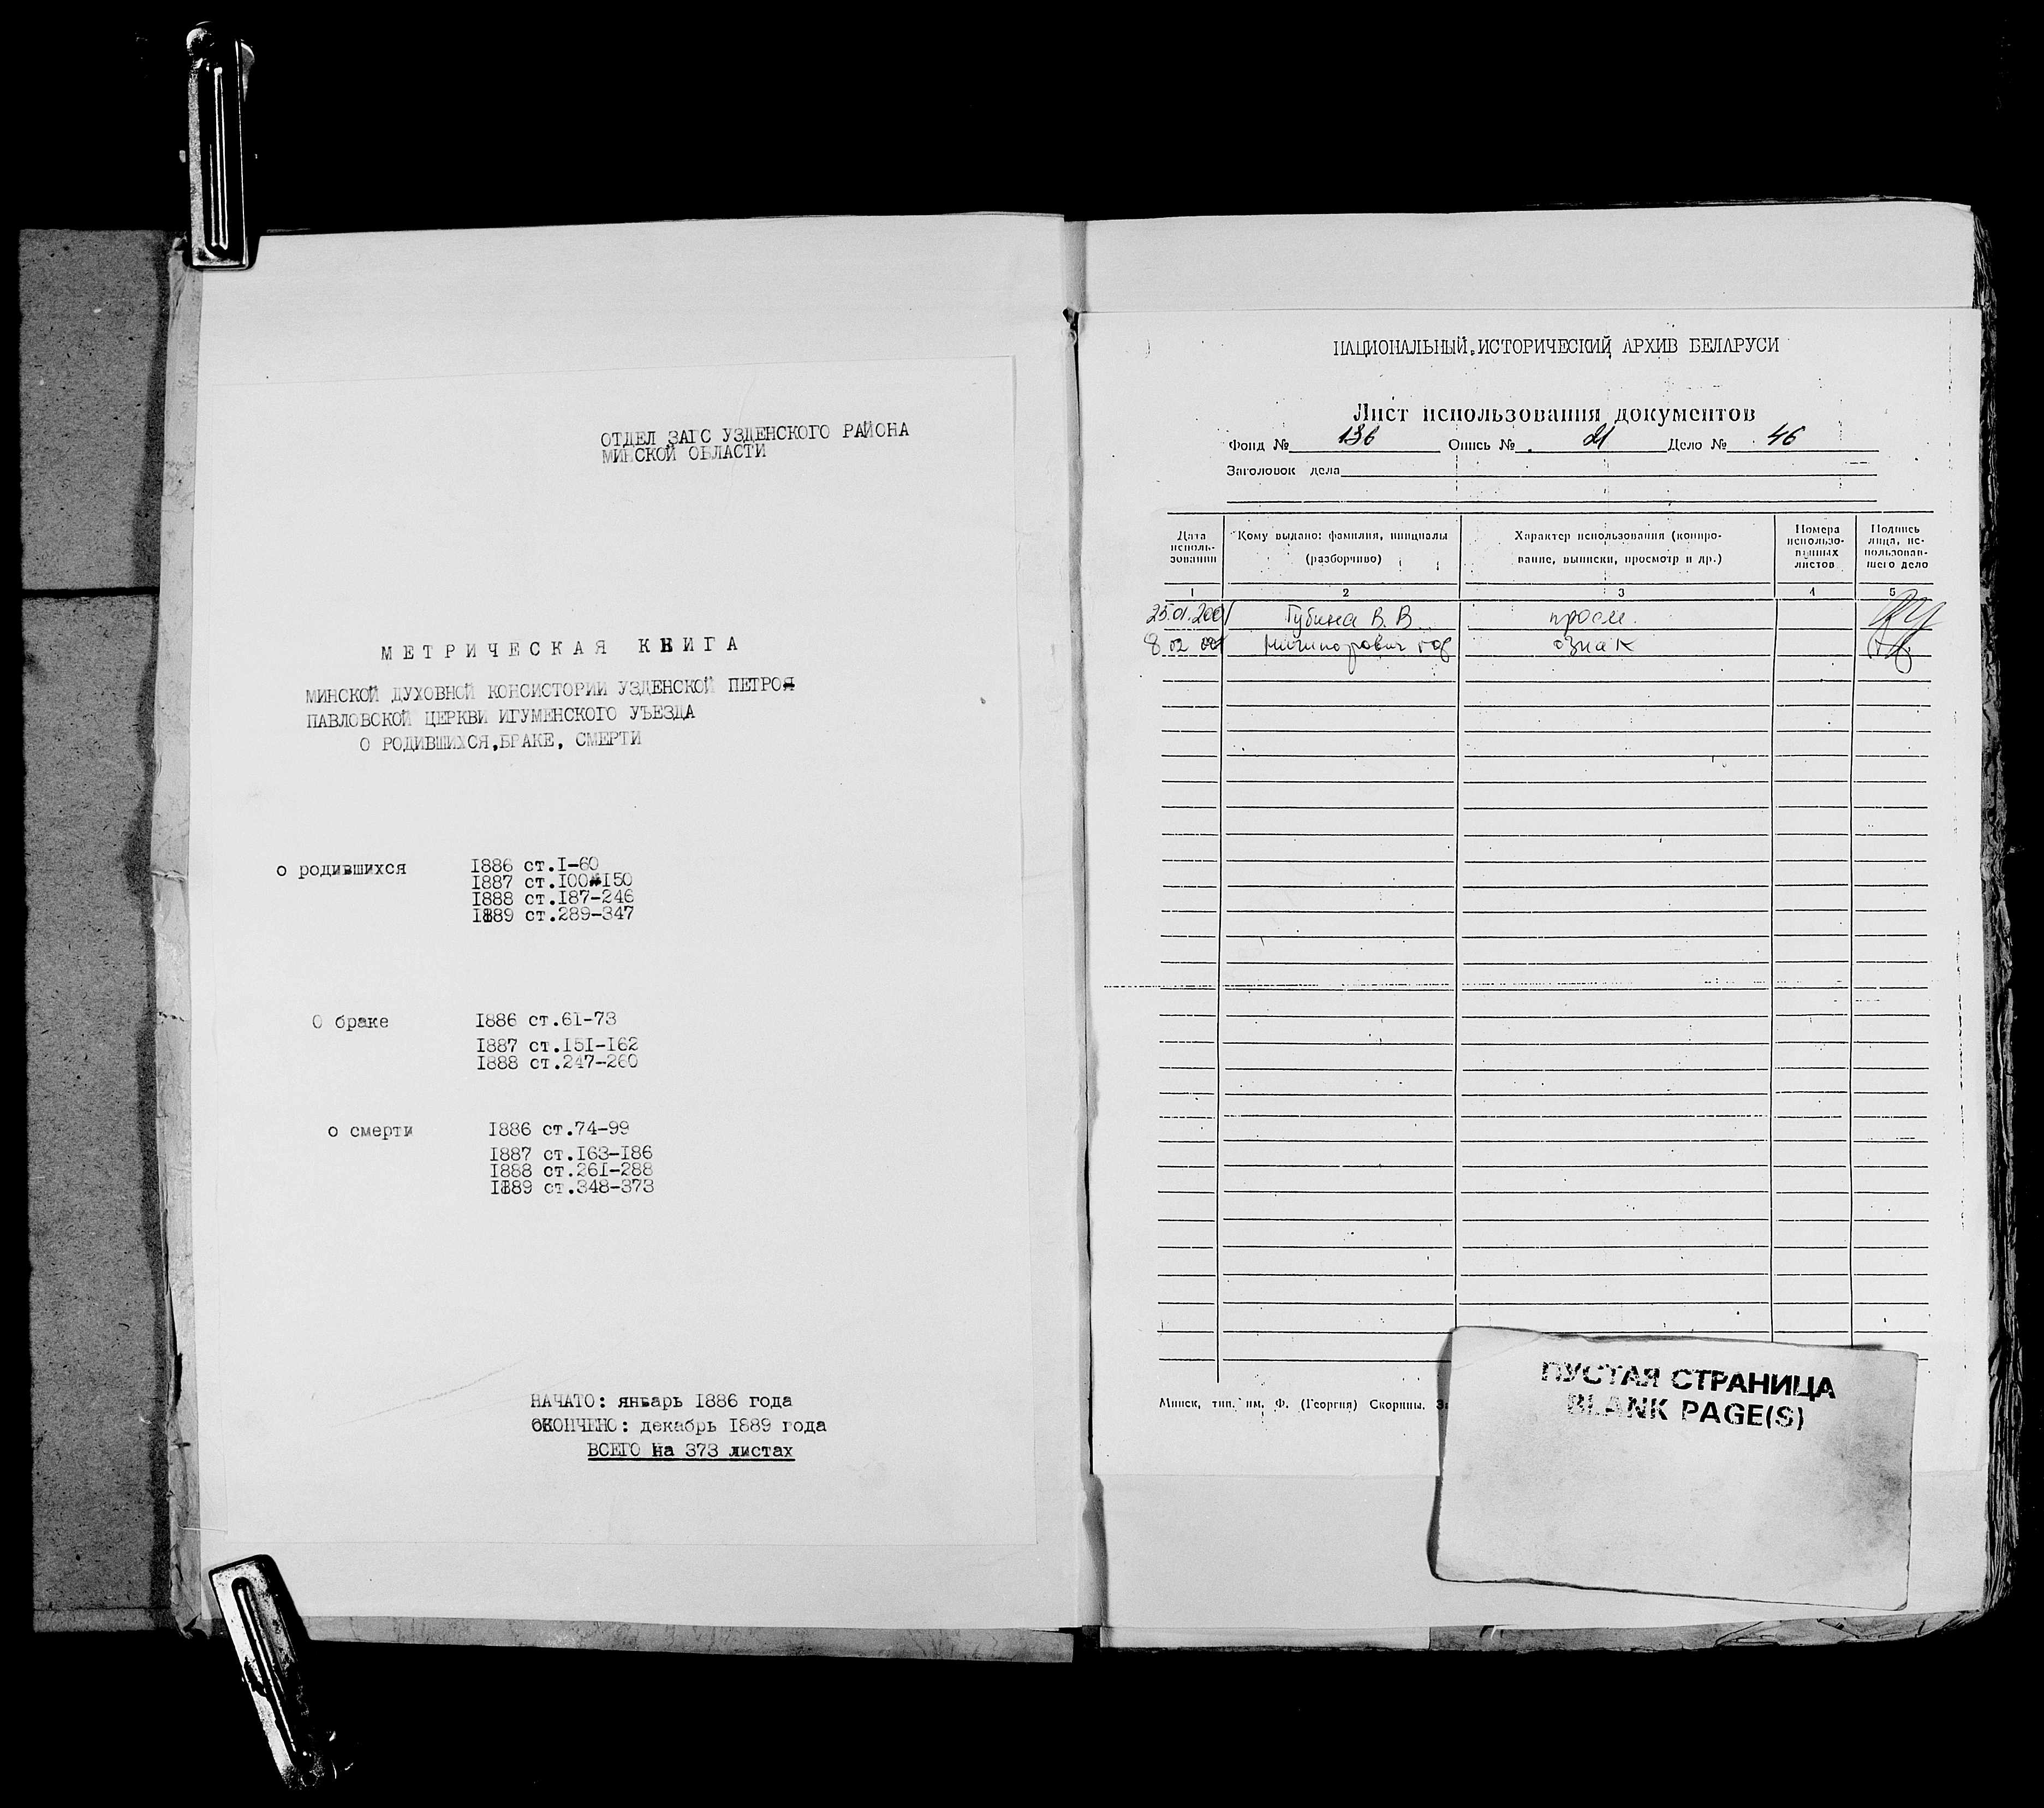 ОТДЕЛ ЗАГС УЗДЕНСКОГО РАЙОНА
МИНСКОЙ ОБЛАСТИ
МЕТРИЧЕСКАЯ КНИГА
МИНСКОЙ ДУХОВНОЙ КОНСИСТОРИИ УЗДЕНСКОЙ ПЕТРО
ПАВЛОВСКОЙ ЦЕРКВИ ИГУМЕНСКОГО УЪЕЗДА
О РОДИВШИХСЯ, БРАКЕ, СМЕРТИ
о родившихся 1886 ст.1-60
1887 ст.100-150
1888 ст.187-246
1889 ст.289-347
О браке 1886 ст.61-73
1887 ст.151-162
1888 ст.247-260
о смерти 1886 ст.74-99
1887 ст.163-186
1888 ст.261-288
1889 ст.348-373
НАЧАТО: январь 1886 года
ОКОНЧЕНО: декабрь 1889 года
ВСЕГО на 373 листах
НАЦИОНАЛЬНЫЙ ИСТОРИЧЕСКИЙ АРХИВ БЕЛАРУСИ
Лист использования документов
Фонд № 136 Опись № 21 Дело № 46
Заголовок дела
Дата исполь-зования
Кому выдано: фамилия, инициалы (разборчиво)
Характер использования (копиро-вание, выписки, просмотр и др.)
Номера использо-ванных листов
Подпись лица, ис-пользовав-шего дело
1 2 3 4 5
25.01.2001 Губина В. В. просм.
8 02 001 ознак
Минск, тип. им. Ф. (Георгия) Скорины.
ПУСТАЯ СТРАНИЦА
BLANK PAGE(S)